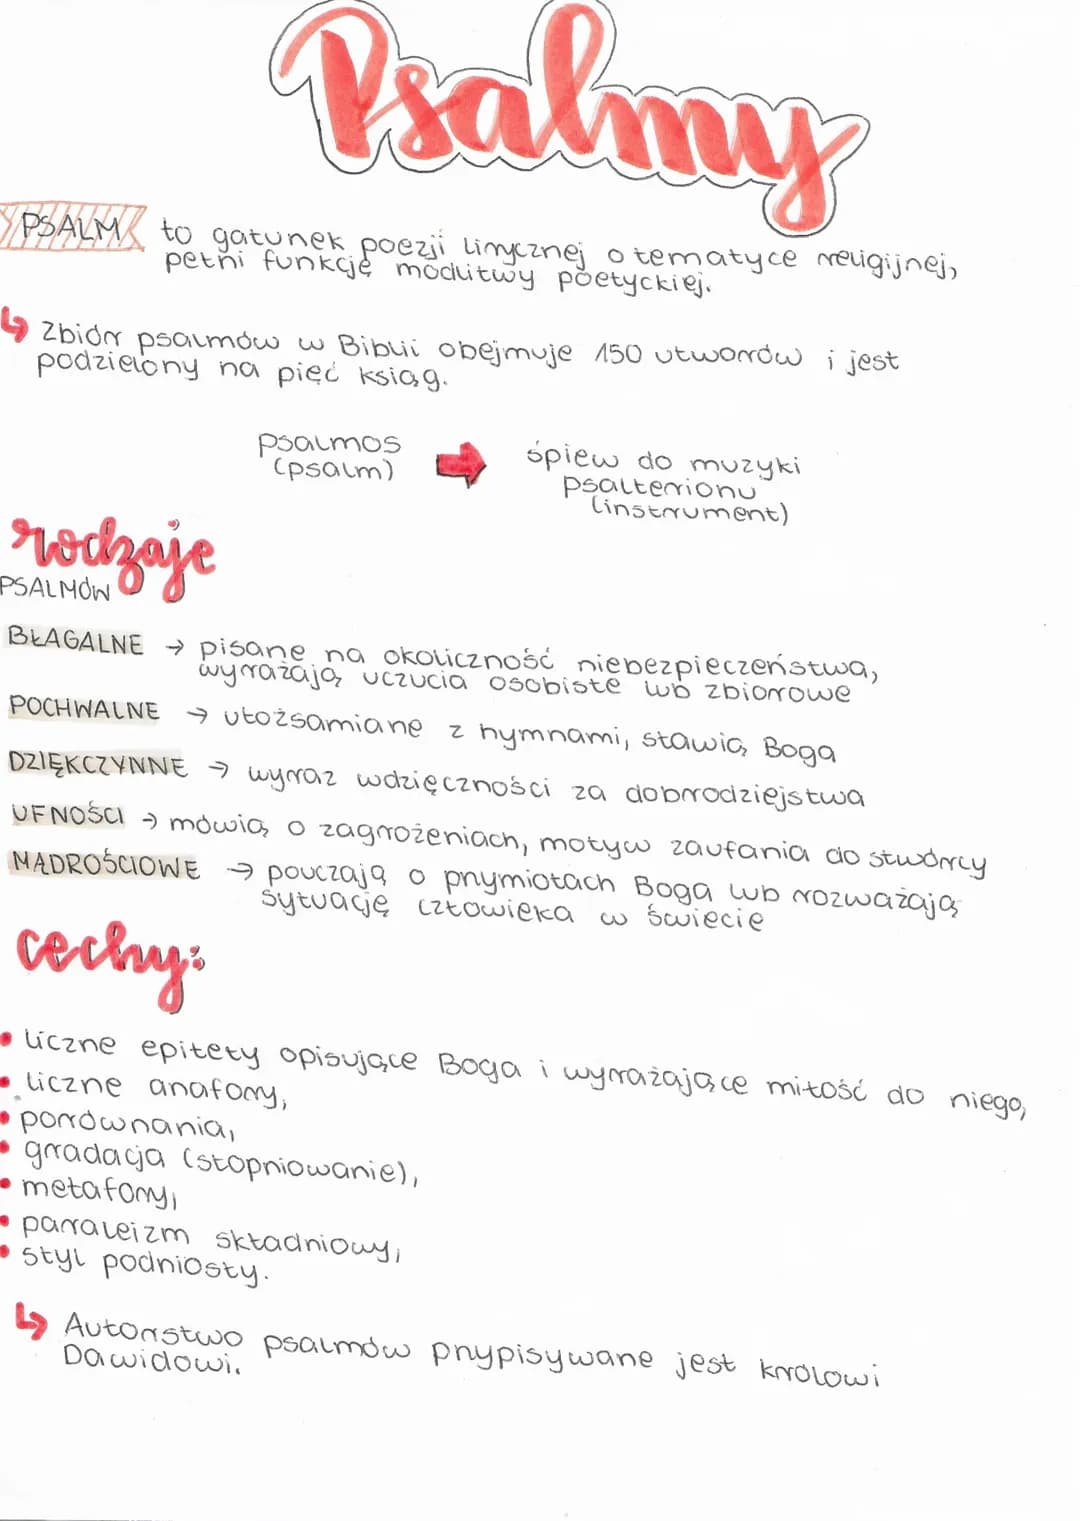 Psalmy
PSALM to gatunek poezji lirycznej o tematyce religijnej,
pełni funkcję modlitwy poetyckiej.
Zbiór psalmów w Biblii obejmuje 150 utworów i jest
podzielony na pięć ksiąg.
Psalmos
(psalm)
śpiew do muzyki
psalterionu
(instrument)
rodzaje
PSALMÓW
BŁAGALNE → pisane na okoliczność niebezpieczeństwa,
wyrażają uczucia osobiste lub zbiorowe
POCHWALNE → utożsamiane z hymnami, sławią Boga
DZIĘKCZYNNE → wyraz wdzięczności za dobrodziejstwa
UFNOŚCI → mówią o zagrożeniach, motyw zaufania do stwórcy
MĄDROŚCIOWE → pouczają o przymiotach Boga lub rozważają
sytuację człowieka w świecie
cechy:
• liczne epitety opisujące Boga i wyrażające miłość do niego,
• liczne anafory,
• porównania,
• gradacja (stopniowanie),
• metafory,
• paraleizm składniowy,
• styl podniosły.
Autorstwo psalmów przypisywane jest królowi
Dawidowi.